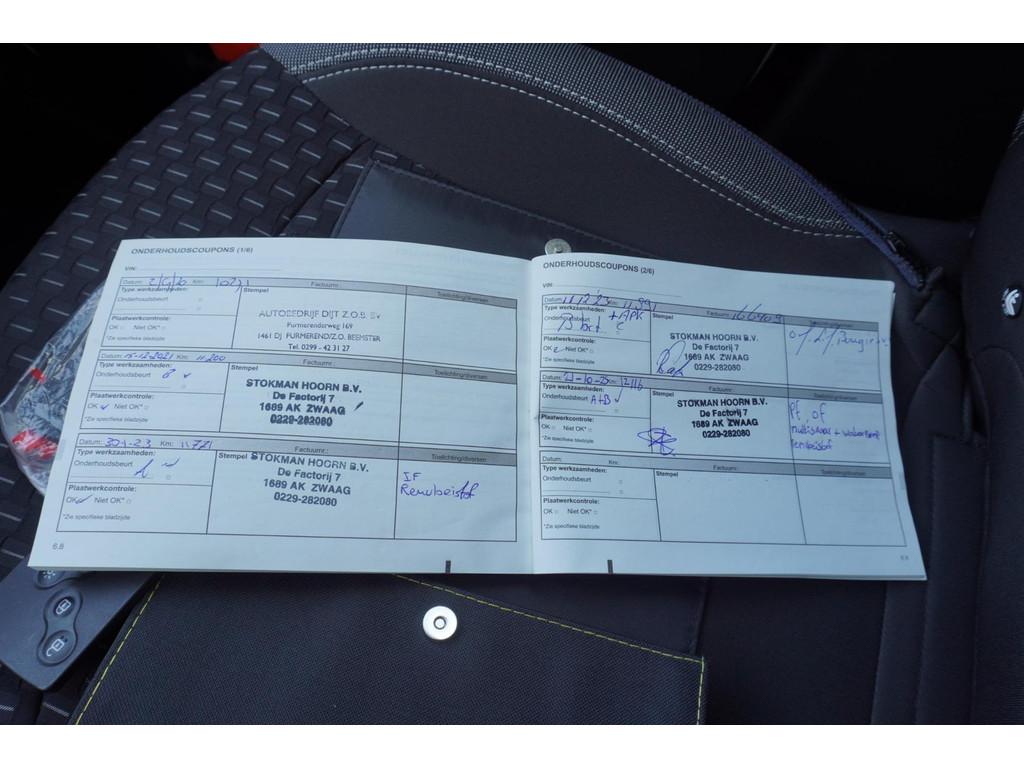 ONDERHOUDSCOUPONS (1/6)
VIN:
Datum: Km: 10271 Factuurnr.:
Type werkzaamheden: Stempel Toelichting/diversen
Onderhoudsbeurt
AUTOBEDRIJF DIJT Z.O.B. BV
Purmerenderweg 169
1461 DJ PURMEREND/Z.O. BEEMSTER
Tel. 0299 - 42 31 27
Plaatwerkcontrole:
OK Niet OK*
*Zie specifieke bladzijde
Datum: 15-12-2021 Km: 11200 Factuurnr.:
Type werkzaamheden: Stempel Toelichting/diversen
Onderhoudsbeurt B
STOKMAN HOORN B.V.
De Factorij 7
1689 AK ZWAAG
0229-282080
Plaatwerkcontrole:
OK Niet OK*
*Zie specifieke bladzijde
Datum: 30-1-23 Km: 11721 Factuurnr.:
Type werkzaamheden: Stempel Toelichting/diversen
Onderhoudsbeurt A
STOKMAN HOORN B.V.
De Factorij 7
1689 AK ZWAAG
0229-282080
IF
Remvloeistof
Plaatwerkcontrole:
OK Niet OK*
*Zie specifieke bladzijde
6.8
ONDERHOUDSCOUPONS (2/6)
VIN:
Datum: 11-12-23 Km: 11.991 Factuurnr.: 166909
Type werkzaamheden: Stempel Toelichting/diversen
Onderhoudsbeurt + APK
B
STOKMAN HOORN B.V.
De Factorij 7
1689 AK ZWAAG
0229-282080
Plaatwerkcontrole:
OK Niet OK*
*Zie specifieke bladzijde
Datum: Km: 12116 Factuurnr.:
Type werkzaamheden: Stempel Toelichting/diversen
Onderhoudsbeurt A+B
STOKMAN HOORN B.V.
De Factorij 7
1689 AK ZWAAG
0229-282080
PF, OF
multisnaar +
remvloeistof
Plaatwerkcontrole:
OK Niet OK*
*Zie specifieke bladzijde
Datum: Km: Factuurnr.:
Type werkzaamheden: Stempel Toelichting/diversen
Onderhoudsbeurt
Plaatwerkcontrole:
OK Niet OK*
*Zie specifieke bladzijde